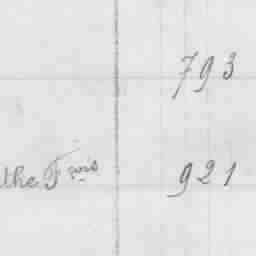 793
the F 921